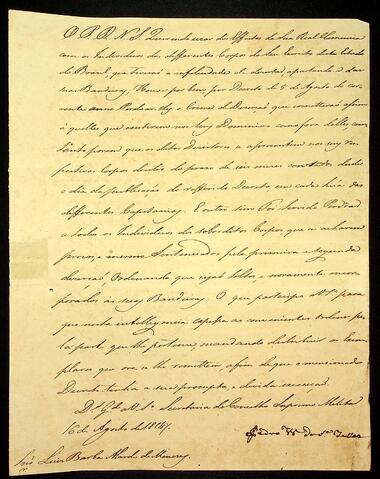 O P. R. N. S. Querendo usar dos Effeitos de Sua Real Clemencia
com os Individuos dos differentes Corpos do Seu Exercito deste Estado
do Brazil, que tiverão a infelicidade de desertar, apartando-se das
suas Bandeiras, Houve por bem, por Decreto de 5 de Agosto do cor-
rente anno Perdoar-lhes o Crime de Deserção, que cometterão assim
á quelles que existirem nos Seus Dominios como fora delles, com
tanto porem que os ditos Desertores se aprezentem nos seus res-
pectivos Corpos dentro do prazo de seis mezes contados desde
o dia da publicação do referido Decreto em cada húa das
differentes Capitanias. E outro sim Foi Servido Perdoar
a todos os Individuos dos sobreditos Corpos que se acharem
prezos, e mesmo Sentenciados pela primeira e segunda
deserção, Ordenando que sejão soltos, e novamente incor-
porados ás suas Bandeiras. O que participo a V. Sª. para
que nesta intelligencia expessa as convenientes ordens pe-
la parte que lhe pertence, mandando destribuir os Exem-
plares que ora se lhe remettem, afim de que o mencionado
Decreto tenha a sua prompta, e devida execução.
Ds. Gde. a V. Sª. Secretaria do Conselho Supremo Militar
16 de Agosto de 1814.
Pedro
Luiz Barba Alardo de Menezes